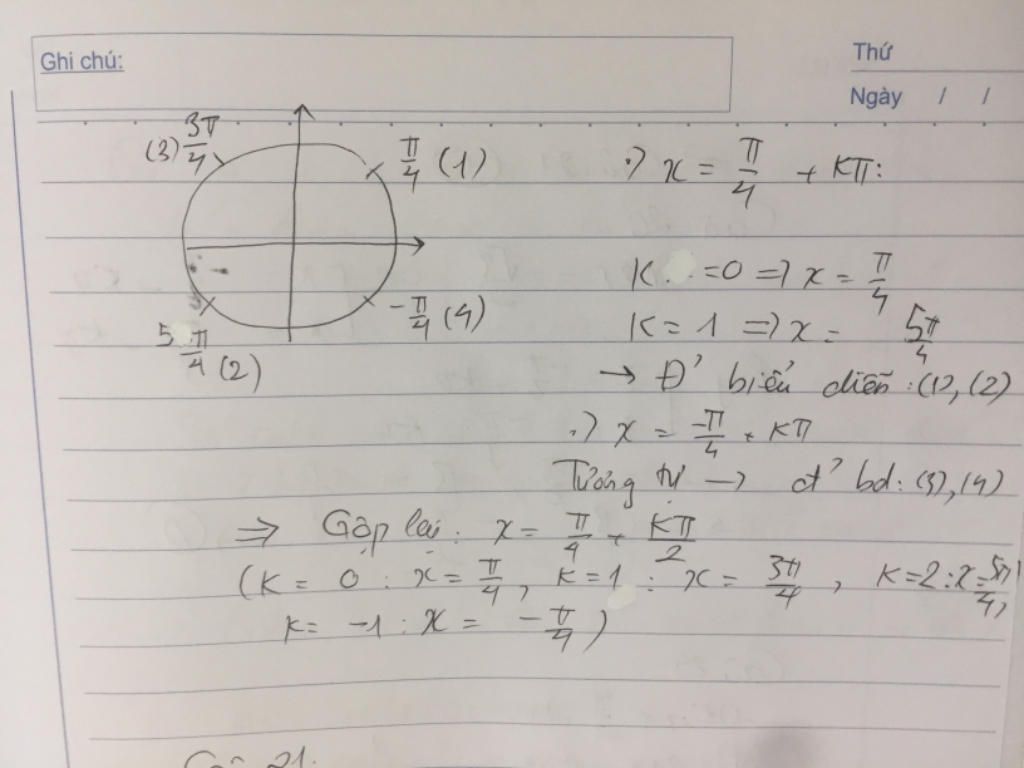 Ghi chú:
Thứ
Ngày / /
(3) 3π/4
π/4 (1)
.) x = π/4 + Kπ:
K =0 => x = π/4
-π/4 (4)
5π/4 (2)
K = 1 => x = 5π/4
→ Đ' biểu diễn : (1), (2)
.) x = -π/4 + Kπ
Tương tự → đ' bd: (3), (4)
=> Gộp lại: x = π/4 + Kπ/2
(K = 0 : x = π/4, K = 1 : x = 3π/4, K=2 : x = 5π/4,
K = -1 : x = -π/4)
Câu 21: